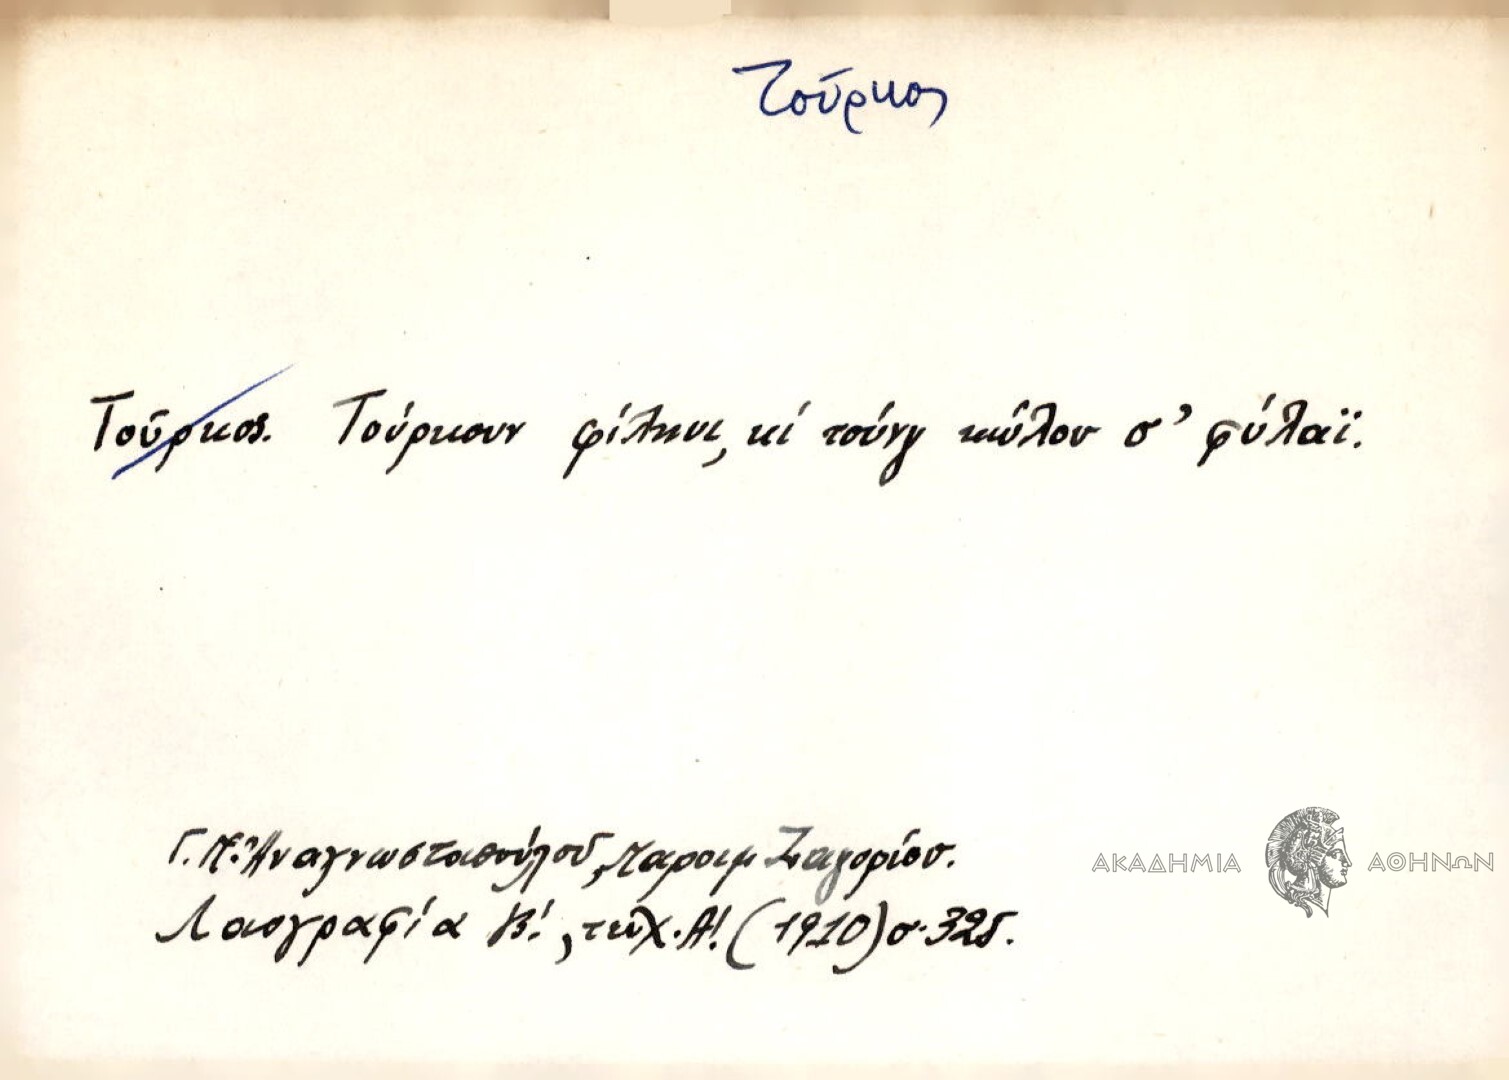 Τούρκος
Τούρκος. Τούρκουν φίληνι, κί τούνγ κώλου σ' φύλαϊ.
Γ. Π. Ἀναγνωστοπούλου, Παροιμ Ζαγορίου.
Λαογραφία Β', τεῦχ. Α'. (1910) σ. 325.
ΑΚΑΔΗΜΙΑ ΑΘΗΝΩΝ